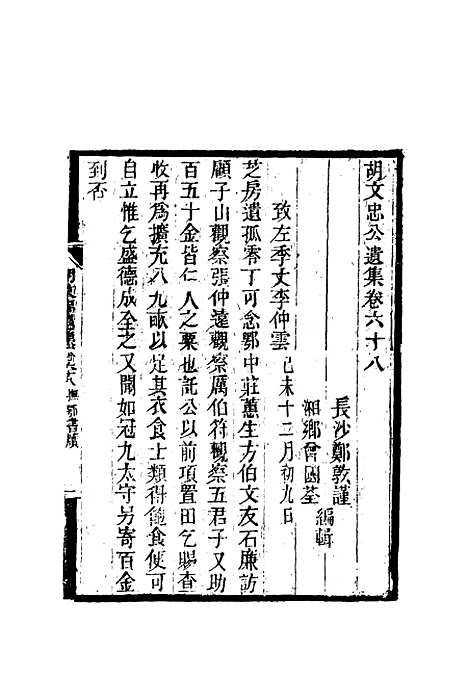 胡文忠公遺集卷六十八
長沙鄭敦謹
湘鄉曾國荃
編輯
致左季丈李仲雲 己未十二月初九日
芝房遺孤零丁可念鄂中莊蕙生方伯文友石廉訪
顧子山觀察張仲遠觀察厲伯符觀察五君子又助
百五十金皆仁人之粟也託公以前項置田乞賜查
收再為擴充八九畝以足其衣食上類得飽食便可
自立惟乞盛德成全之又聞如冠九太守另寄百金
到否